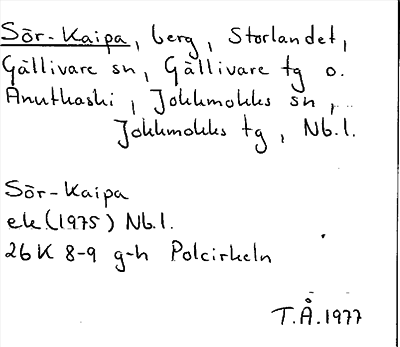 Sör-Kaipa, berg, Storlandet,
Gällivare sn, Gällivare tg o.
Anutkaski, Jokkmokks sn,
Jokkmokks tg, Nb.l.
Sör-Kaipa
ek (1975) Nb.l.
26K 8-9 g-h Polcirkeln
T.Å.1977